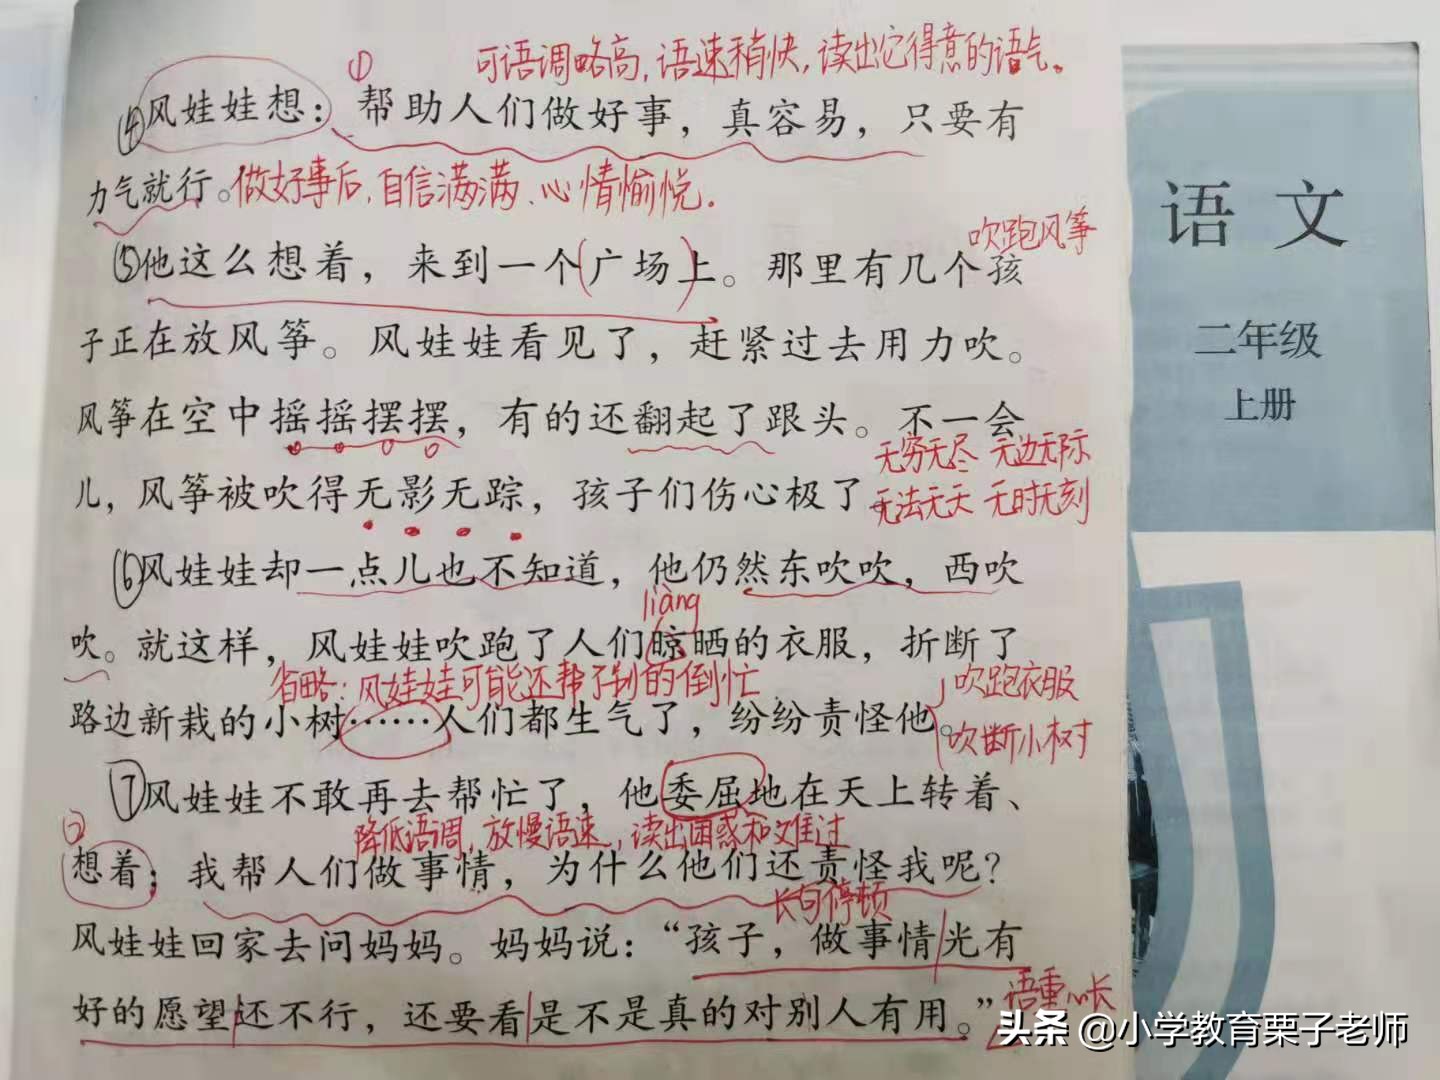 ① 可语调略高,语速稍快,读出它得意的语气。
④风娃娃想：帮助人们做好事，真容易，只要有
力气就行。做好事后,自信满满、心情愉悦.
吹跑风筝
⑤他这么想着，来到一个(广场)上。那里有几个孩
子正在放风筝。风娃娃看见了，赶紧过去用力吹。
风筝在空中摇摇摆摆，有的还翻起了跟头。不一会
无穷无尽 无边无际
儿，风筝被吹得无影无踪，孩子们伤心极了
无法无天 无时无刻
⑥风娃娃却一点儿也不知道，他仍然东吹吹，西吹
liàng
吹。就这样，风娃娃吹跑了人们晾晒的衣服，折断了
省略:风娃娃可能还帮了别的倒忙
吹跑衣服
路边新栽的小树……人们都生气了，纷纷责怪他。
吹断小树
⑦风娃娃不敢再去帮忙了，他委屈地在天上转着、
② 降低语调,放慢语速,读出困惑和难过
想着：我帮人们做事情，为什么他们还责怪我呢？
长句停顿
风娃娃回家去问妈妈。妈妈说：“孩子，做事情|光有
好的愿望|还不行，还要看|是不是真的对别人有用。”
语重心长
语文
二年级
上册
头条 @小学教育栗子老师